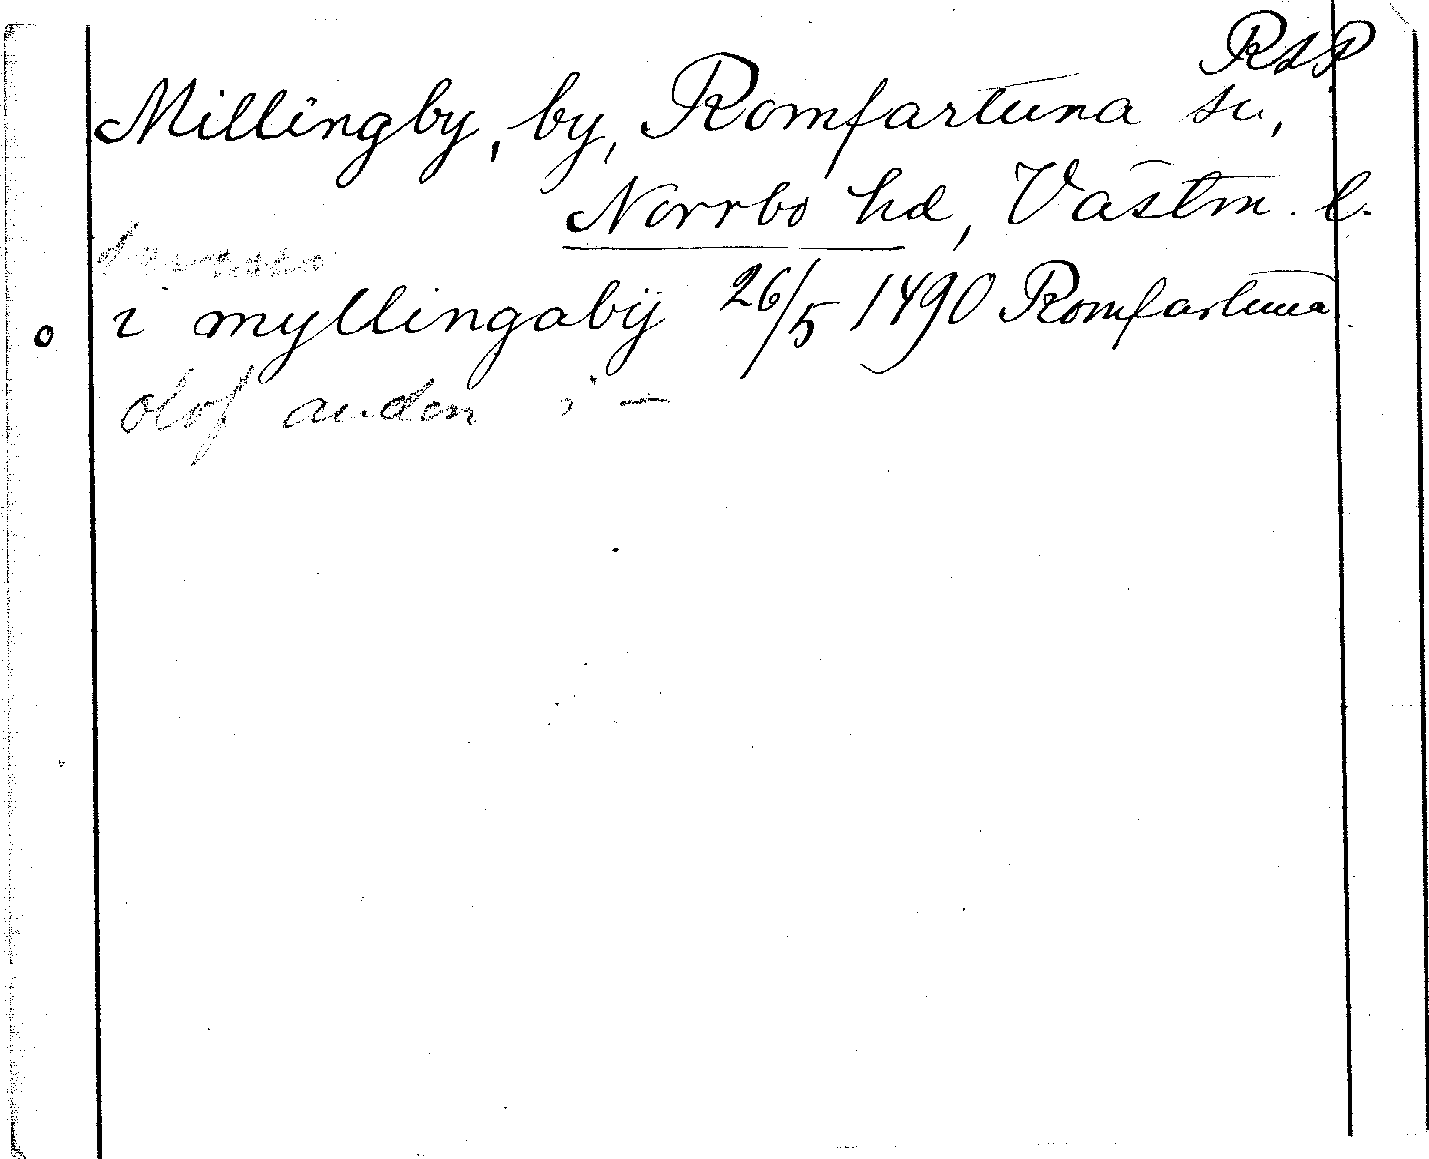 RAP
Millingby, by, Romfartuna sn,
Norrbo hd, Västm. l.
i myllingabÿ 26/5 1490 Romfartuna
olof anden i –